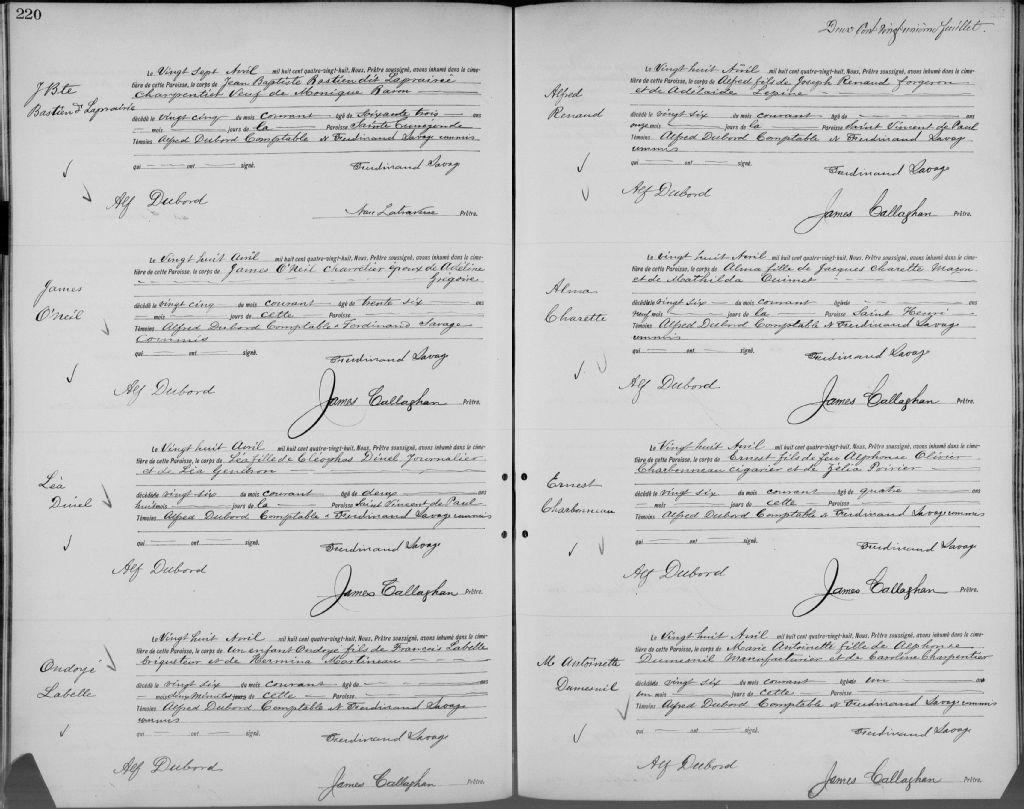 220
J Bte
Bastien dt Laprairie
Le Vingt sept Avril mil huit cent quatre-vingt-huit, Nous, Prêtre soussigné, avons inhumé dans le cime-
tière de cette Paroisse, le corps de Jean Baptiste Bastien dit Laprairie
Charpentier Veuf de Monique
décédé le vingt cinq du mois courant âgé de soixante trois ans
mois jours de la Paroisse Sainte Cunégonde
Témoins Alfred Dubord Comptable & Ferdinand Lavage commis
qui ont signé.
Ferdinand Lavage
Alf Dubord
Prêtre.
James
O'Neil
Le Vingt huit Avril mil huit cent quatre-vingt-huit, Nous, Prêtre soussigné, avons inhumé dans le cime-
tière de cette Paroisse, le corps de James O'Neil charretier époux de Adeline
Grégoire
décédé le vingt cinq du mois courant âgé de trente six ans
mois jours de cette Paroisse
Témoins Alfred Dubord Comptable & Ferdinand Lavage
Commis
qui ont signé.
Ferdinand Lavage
Alf Dubord
James Callaghan Prêtre.
Léa
Dinel
Le Vingt huit Avril mil huit cent quatre-vingt-huit, Nous, Prêtre soussigné, avons inhumé dans le cime-
tière de cette Paroisse, le corps de Léa fille de Cléophas Dinel Journalier
et de Léa Gendron
décédée le vingt six du mois courant âgé de deux ans
huit mois jours de la Paroisse Saint Vincent de Paul
Témoins Alfred Dubord Comptable & Ferdinand Lavage commis
qui ont signé.
Ferdinand Lavage
Alf Dubord
James Callaghan Prêtre.
Ondoyé
Labelle
Le Vingt huit Avril mil huit cent quatre-vingt-huit, Nous, Prêtre soussigné, avons inhumé dans le cime-
tière de cette Paroisse, le corps de Un enfant Ondoyé fils de Francois Labelle
briqueteur et de Hermina Martineau
décédé le vingt six du mois courant âgé de
mois dix minutes jours de cette Paroisse
Témoins Alfred Dubord Comptable & Ferdinand Lavage
commis
qui ont signé.
Ferdinand Lavage
Alf Dubord
James Callaghan Prêtre.
Deux Cent vingt unième feuillet.
Alfred
Renaud
Le Vingt huit Avril mil huit cent quatre-vingt-huit, Nous, Prêtre soussigné, avons inhumé dans le cime-
tière de cette Paroisse, le corps de Alfred fils de Joseph Renaud forgeron
et de Adélaide Lépine
décédé le vingt six du mois courant âgé de ans
onze mois jours de la Paroisse Saint Vincent de Paul
Témoins Alfred Dubord Comptable & Ferdinand Lavage
commis
qui ont signé.
Ferdinand Lavage
Alf Dubord
James Callaghan Prêtre.
Alma
Charette
Le vingt huit Avril mil huit cent quatre-vingt-huit, Nous, Prêtre soussigné, avons inhumé dans le cime-
tière de cette Paroisse, le corps de Alma fille de Jacques Charette Maçon
et de Mathilda Ouimet
décédée le vingt six du mois courant âgée de ans
neuf mois jours de la Paroisse Saint Henri
Témoins Alfred Dubord Comptable & Ferdinand Lavage
commis
qui ont signé.
Ferdinand Lavage
Alf Dubord
James Callaghan Prêtre.
Ernest
Charbonneau
Le Vingt huit Avril mil huit cent quatre-vingt-huit, Nous, Prêtre soussigné, avons inhumé dans le cime-
tière de cette Paroisse, le corps de Ernest fils de feu Alphonse Olivier
Charbonneau cigarier et de Zélia Poirier
décédé le vingt six du mois courant âgé de quatre ans
mois jours de cette Paroisse
Témoins Alfred Dubord Comptable & Ferdinand Lavage commis
qui ont signé.
Ferdinand Lavage
Alf Dubord
James Callaghan Prêtre.
M Antoinette
Dumesnil
Le Vingt huit Avril mil huit cent quatre-vingt-huit, Nous, Prêtre soussigné, avons inhumé dans le cime-
tière de cette Paroisse, le corps de Marie Antoinette fille de Alphonse
Dumesnil Manufacturier et de Caroline Charpentier
décédée le vingt six du mois courant âgée de un an
un mois jours de cette Paroisse
Témoins Alfred Dubord Comptable & Ferdinand Lavage commis
qui ont signé.
Ferdinand Lavage
Alf Dubord
James Callaghan Prêtre.